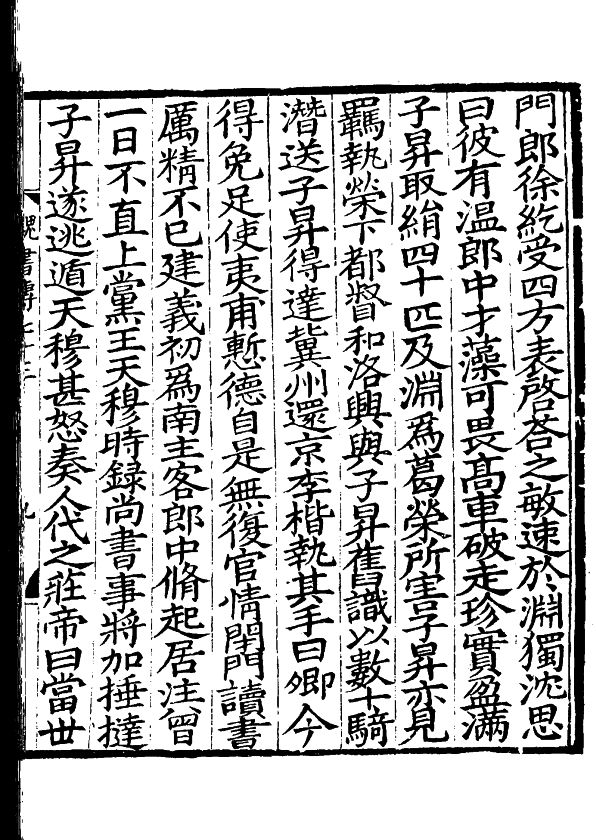 門郎徐紇受四方表啓荅之敏速於淵獨沈思
曰彼有温郎中才藻可畏髙車破走珍實盈滿
子昇取絹四十匹及淵爲葛榮所害子昇亦見
羈執榮下都督和洛興與子昇舊識以數十騎
潛送子昇得達冀州還京李楷執其手曰卿今
得免足使夷甫慙德自是無復官情閉門讀書
厲精不已建義初爲南主客郎中脩起居注曾
一日不直上黨王天穆時録尚書事將加捶撻
子昇遂逃遁天穆甚怒奏人代之莊帝曰當世
九